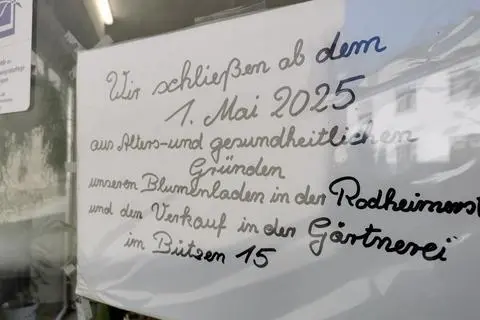 Wir schließen ab dem
1. Mai 2025
aus Alters- und gesundheitlichen
Gründen
unseren Blumenladen in der Rodheimerst
und den Verkauf in der Gärtnerei
im Bützen 15